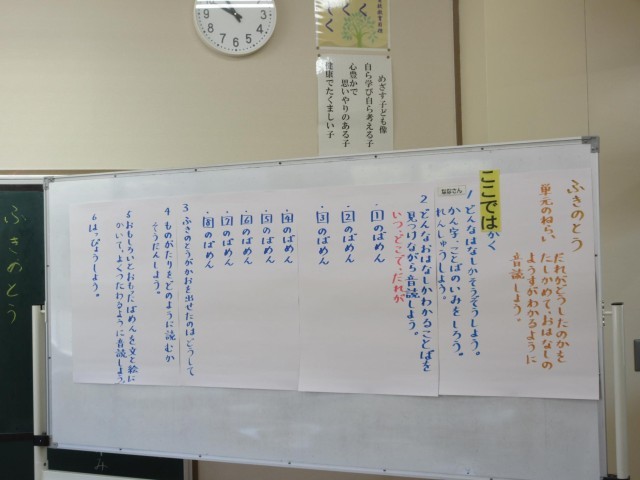 めざす子ども像
自ら学び自ら考える子
心豊かで
思いやりのある子
健康でたくましい子
ふきのとう
単元のねらい
だれがどうしたのかを
たしかめて、おはなしの
ようすがわかるように
音読しよう。
ここでは
かく
1 どんなはなしかそうぞうしよう。
かん字、ことばのいみをしろう。
れんしゅうしよう。
2 どんなおはなしかわかることばを
見つけながら音読しよう。
いつ・どこで・だれが
・1のばめん
・2のばめん
・3のばめん
・4のばめん
・5のばめん
・6のばめん
・7のばめん
・8のばめん
3 ふきのとうがかおを出せたのはどうして
4 ものがたりをどのように読むか
そうだんしよう。
5 おもしろいとおもったばめんを文と絵に
かいて、よくつたわるように音読しよう。
6 はっぴょうしよう。
ふきのとう